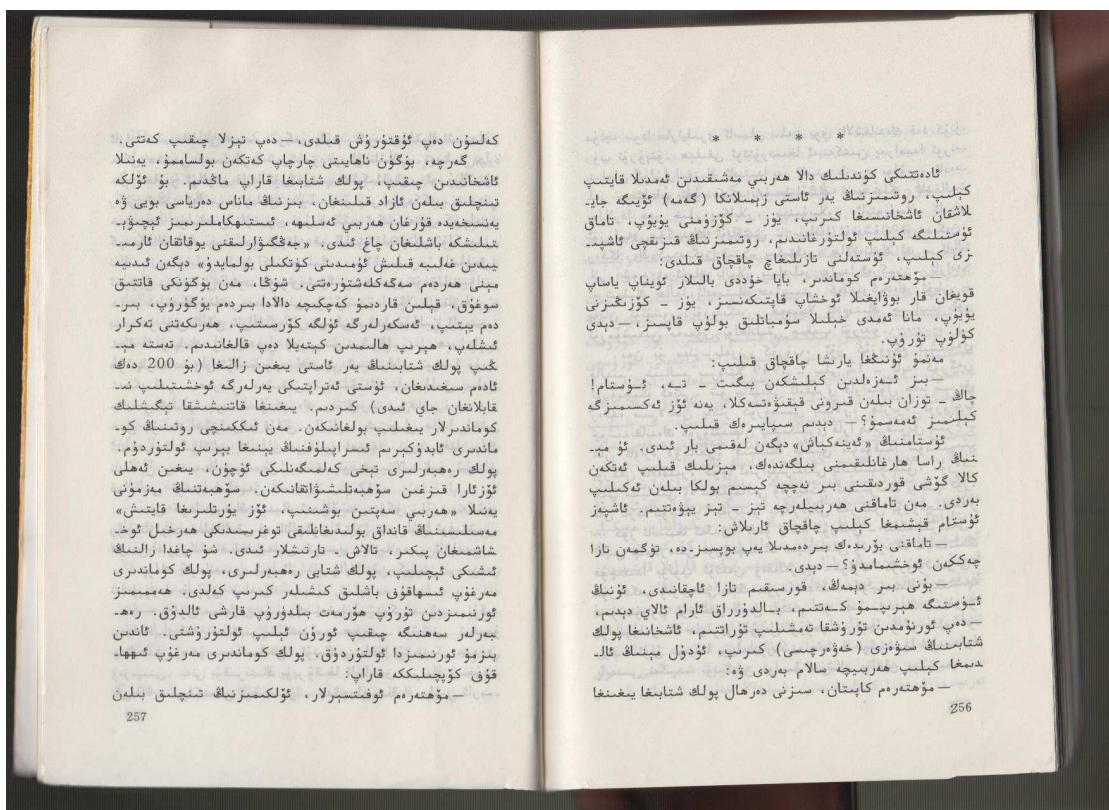 * * * *
ئادەتتىكى كۈندىلىك دالا ھەربىي مەشىقىدىن ئەمدىلا قايتىپ
كېلىپ، روتىمىزنىڭ يەر ئاستى زېمىلانكا (گەمە) ئۆيىگە جاي-
لاشقان ئاشخانىسىغا كىرىپ، يۈز - كۆزۈمنى يۇيۇپ، تاماق
ئۈستىلىگە كېلىپ ئولتۇرغانىدىم، روتىمىزنىڭ قىزىقچى ئاشپى-
زى كېلىپ، ئۈستەلنى تازىلىغاچ چاقچاق قىلدى:
— مۆھتەرەم كوماندىر، بايا خۇددى بالىلار ئويناپ ياساپ
قويغان قار بوۋايغىلا ئوخشاپ قاپتىكەنسىز، يۈز - كۆزىڭىزنى
يۇيۇپ، مانا ئەمدى خېلىلا سۈمباتلىق بولۇپ قاپسىز، — دېدى
كۈلۈپ تۇرۇپ.
مەنمۇ ئۇنىڭغا يارىشا چاقچاق قىلىپ:
— بىز ئەزەلدىن كېلىشكەن يىگىت - تە، ئۇستام!
چاڭ - توزان بىلەن قىرونى قېقىۋەتسەكلا، يەنە ئۆز ئەكسىمىزگە
كېلىمىز ئەمەسمۇ؟ — دېدىم سىپايىرەك قىلىپ.
ئۇستامنىڭ «ئەينەكباش» دېگەن لەقىمى بار ئىدى. ئۇ مې-
نىڭ راسا ھارغانلىقىمنى بىلگەندەك، مېزىلىك قىلىپ ئەتكەن
كالا گۆشى قوردىقىنى بىر نەچچە كېسىم بولكا بىلەن ئەكىلىپ
بەردى. مەن تاماقنى ھەربىيلەرچە تېز - تېز يېۋەتتىم. ئاشپەز
ئۇستام قېشىمغا كېلىپ چاقچاق ئارىلاش:
— تاماقنى بۆرىدەك بىردەمدىلا يەپ بوپسىز-دە، تۈگمەن تازا
چەككەن ئوخشىمامدۇ؟ — دېدى.
— بۇنى بىر دېمەڭ، قورسىقىم تازا ئاچقانىدى، ئۇنىڭ
ئۈستىگە ھېرىپمۇ كەتتىم، بالدۇرراق ئارام ئالاي دېدىم،
— دەپ ئورنۇمدىن تۇرۇشقا تەمشىلىپ تۇراتتىم، ئاشخانىغا پولك
شتابىنىڭ سىۋەزى (خەۋەرچىسى) كىرىپ، ئۇدۇل مېنىڭ ئال-
دىمغا كېلىپ ھەربىيچە سالام بەردى ۋە:
— مۆھتەرەم كاپىتان، سىزنى دەرھال پولك شتابىغا يىغىنغا
256
كەلسۇن دەپ ئۇقتۇرۇش قىلدى، — دەپ تېزلا چىقىپ كەتتى.
گەرچە، بۈگۈن ناھايىتى چارچاپ كەتكەن بولساممۇ، يەنىلا
ئاشخانىدىن چىقىپ، پولك شتابىغا قاراپ ماڭدىم. بۇ ئۆلكە
تىنچلىق بىلەن ئازاد قىلىنغان، بىزنىڭ ماناس دەرياسى بويى ۋە
يەنسىخەيدە قۇرغان ھەربىي ئەسلىھە، ئىستىھكاملىرىمىز ئېچىۋې-
تىلىشكە باشلىغان چاغ ئىدى، «جەڭگىۋارلىقنى يوقاتقان ئارمى-
يىدىن غەلىبە قىلىش ئۈمىدىنى كۈتكىلى بولمايدۇ» دېگەن ئىدىيە
مېنى ھەردەم سەگەكلەشتۈرەتتى. شۇڭا، مەن بۈگۈنكى قاتتىق
سوغۇق، قېلىن قاردىمۇ كەچكىچە دالادا بىردەم يۈگۈرۈپ، بىر-
دەم يېتىپ، ئەسكەرلەرگە ئۈلگە كۆرسىتىپ، ھەرىكەتنى تەكرار
ئىشلەپ، ھېرىپ ھالىمدىن كېتەيلا دەپ قالغانىدىم. تەستە مې-
ڭىپ پولك شتابىنىڭ يەر ئاستى يىغىن زالىغا (بۇ 200 دەك
ئادەم سىغىدىغان، ئۈستى ئەتراپتىكى يەرلەرگە ئوخشىتىلىپ نى-
قابلانغان جاي ئىدى) كىردىم. يىغىنغا قاتنىشىشقا تېگىشلىك
كوماندىرلار يىغىلىپ بولغانىكەن. مەن ئىككىنچى روتىنىڭ كو-
ماندىرى ئابدۇكېرىم ئىسراپىلوفنىڭ يېنىغا بېرىپ ئولتۇردۇم.
پولك رەھبەرلىرى تېخى كەلمىگەنلىكى ئۈچۈن، يىغىن ئەھلى
ئۆزئارا قىزغىن سۆھبەتلىشىۋاتقانىكەن. سۆھبەتنىڭ مەزمۇنى
يەنىلا «ھەربىي سەپتىن بوشىنىپ، ئۆز يۇرتلىرىغا قايتىش»
مەسىلىسىنىڭ قانداق بولىدىغانلىقى توغرىسىدىكى ھەرخىل ئوخ-
شاشمىغان پىكىر، تالاش - تارتىشلار ئىدى. شۇ چاغدا زالنىڭ
ئىشىكى ئېچىلىپ، پولك شتابى رەھبەرلىرى، پولك كوماندىرى
مەرغۇپ ئىسھاقوف باشلىق كىشىلەر كىرىپ كەلدى. ھەممىمىز
ئورنىمىزدىن تۇرۇپ ھۆرمەت بىلدۈرۈپ قارشى ئالدۇق. رەھ-
بەرلەر سەھنىگە چىقىپ ئورۇن ئېلىپ ئولتۇرۇشتى. ئاندىن
بىزمۇ ئورنىمىزدا ئولتۇردۇق. پولك كوماندىرى مەرغۇپ ئىسھا-
قوف كۆپچىلىككە قاراپ:
— مۆھتەرەم ئوفىتسېرلار، ئۆلكىمىزنىڭ تىنچلىق بىلەن
257